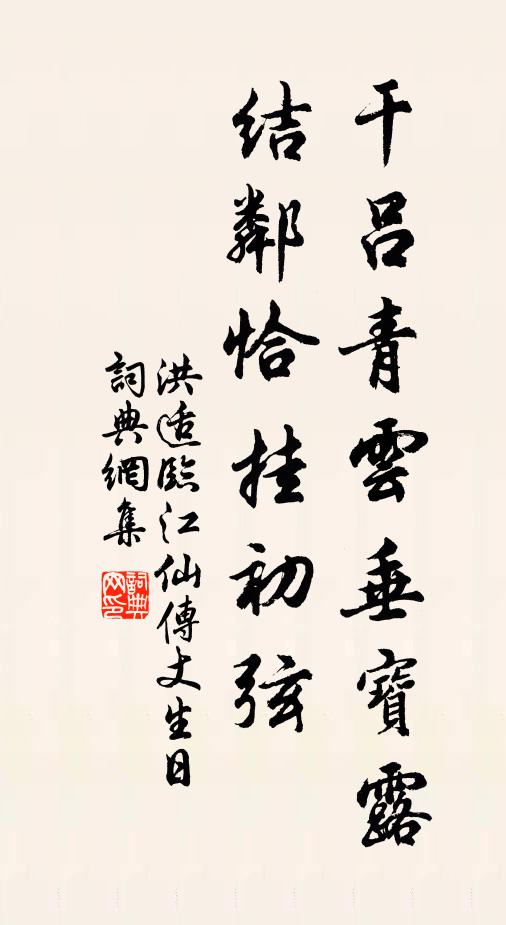 干呂青雲垂寶露
結鄰恰挂初弦
洪适臨江仙傅丈生日
詞典網集
詞典网印